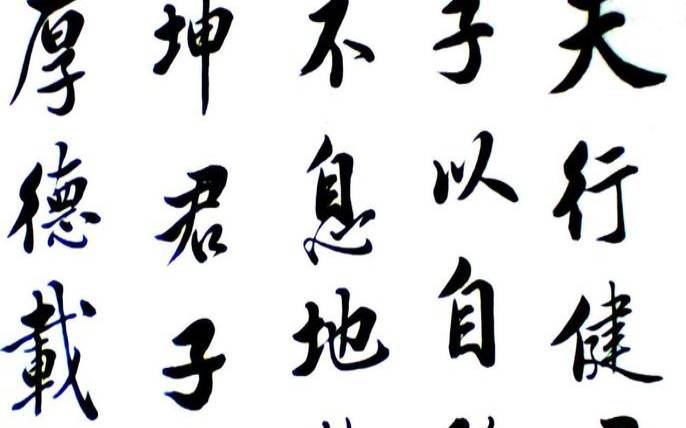 天行健
子以自
不息地
坤君子
厚德載